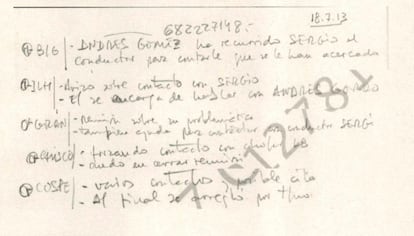 682227148.-
18.7.13
BIG - ANDRES GOMEZ ha recurrido SERGIO el
conductor para contarle que se le han acercado
JLM - Aviso sobre contacto con SERGIO
- El se encarga de hablar con ANDRES GORDO
GRAN - reunión sobre su problemática
- tambien ayuda para contactar con conductor SERGI
CHISCO - trazando contacto con chofer LB
- quedo en cerrar reunión
COSPE - varios contactos, posible cita
- Al final se arregló por tfno.
7012781